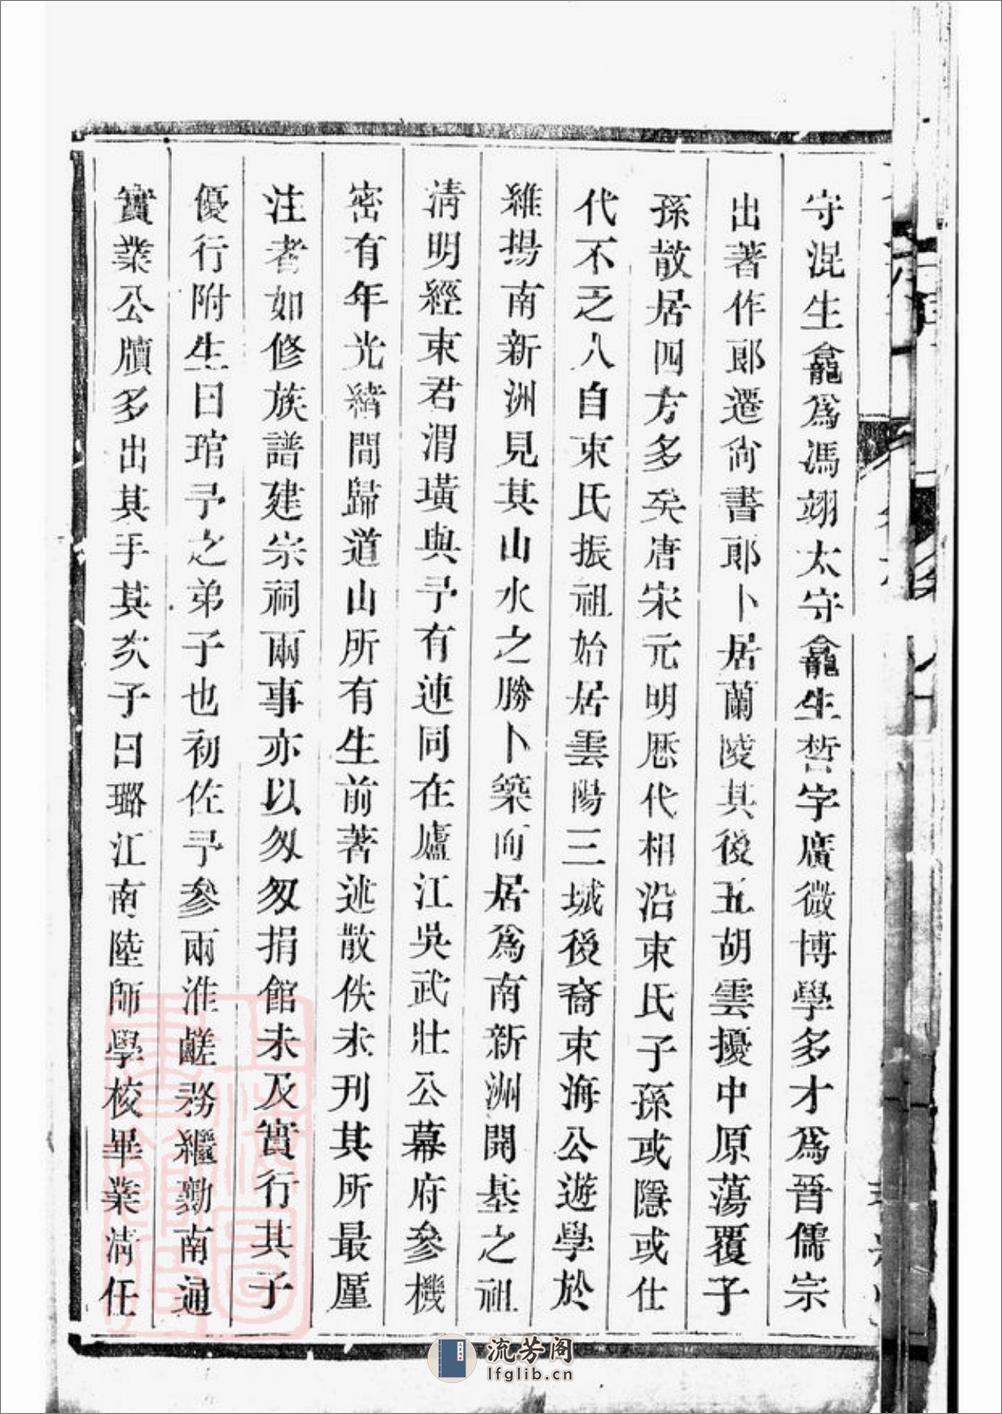 守混生龕爲馮翊太守龕生皙字廣微博學多才爲晉儒宗
出著作郎遷尙書郎卜居蘭陵其後五胡雲擾中原蕩覆子
孫散居四方多矣唐宋元明歷代相沿束氏子孫或隱或仕
代不乏人自束氏振祖始居雲陽三城後裔東海公遊學於
維揚南新洲見其山水之勝卜築而居爲南新洲開基之祖
淸明經束君渭璜與予有連同在廬江吳武壯公幕府參機
密有年光緒間歸道山所有生前著述散佚未刊其所最厪
注者如修族譜建宗祠兩事亦以匆匆捐館未及實行其子
優行附生曰琯予之弟子也初佐予參兩淮鹺務繼勷南通
實業公牘多出其手其次子曰璐江南陸師學校畢業淸任
流芳阁
lfglib.cn